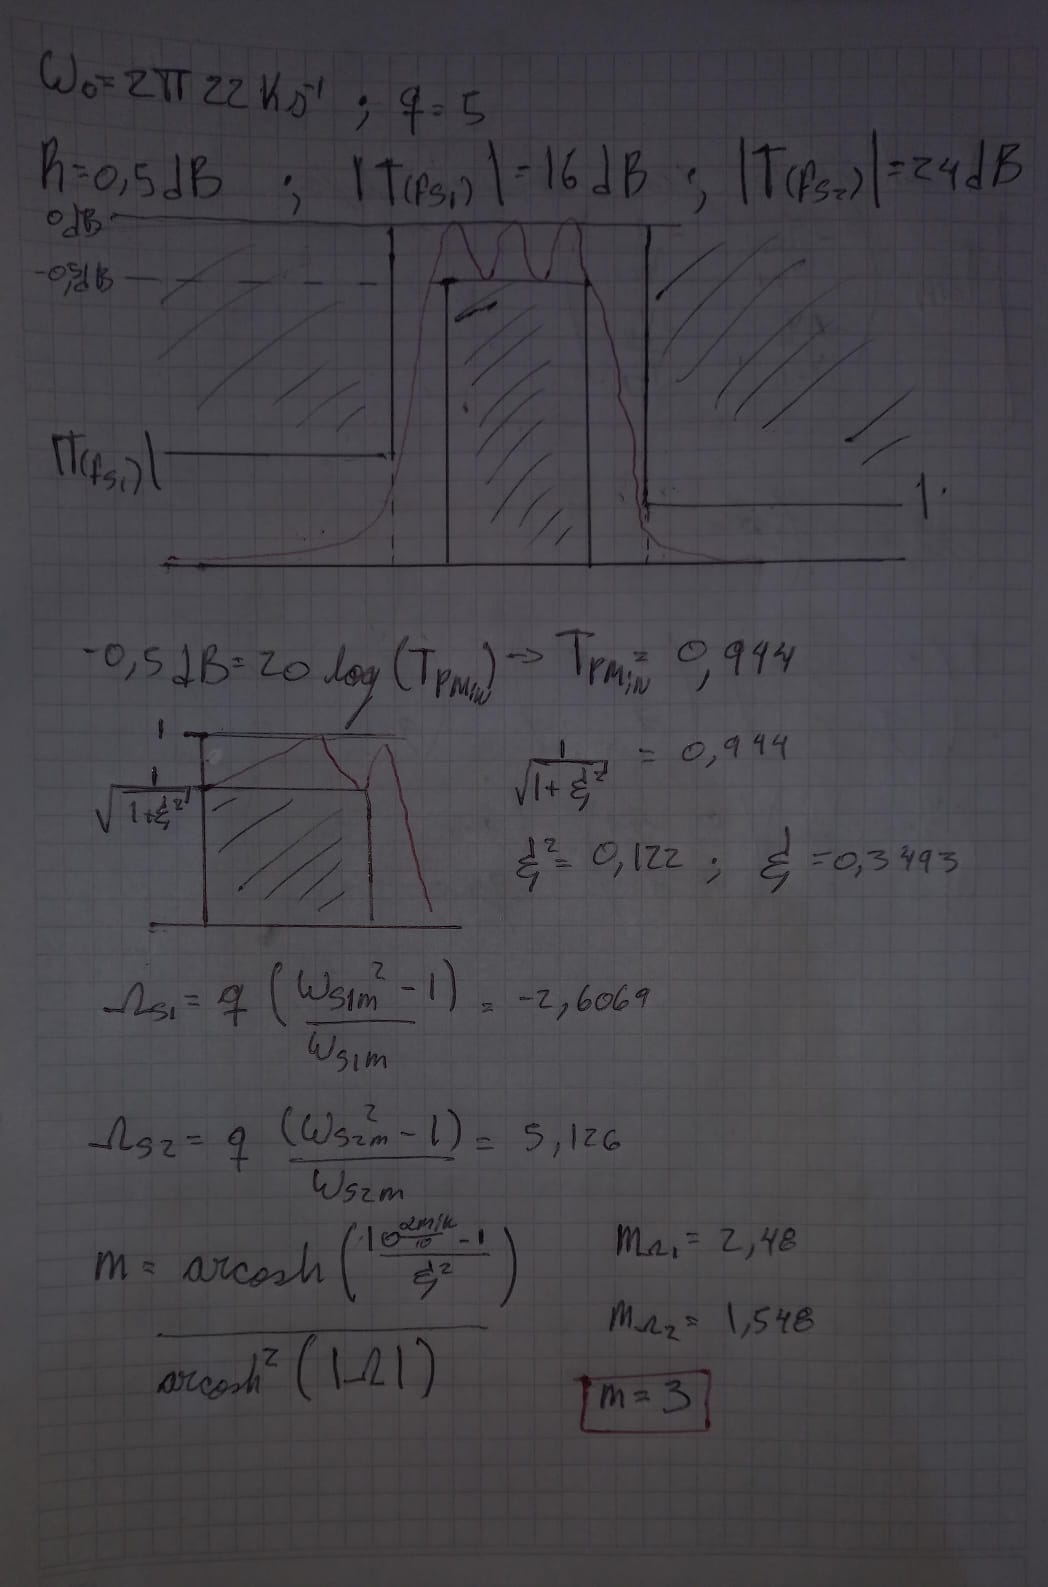 ω₀=2π 22 K s⁻¹ ; q=5
R=0,5dB ; |T(fs₁)|=16dB ; |T(fs₂)|=24dB
0dB
-0,5dB
|T(fs₁)|
1.
-0,5dB=20 log(TPMin) → TPMin= 0,944
1
1/√(1+ξ²)
1/√(1+ξ²) = 0,944
ξ²= 0,122 ; ξ=0,3493
Ωs₁= q (ωs1m²-1)/ωs1m = -2,6069
Ωs2= q (ωs2m²-1)/ωs2m = 5,126
m= arcosh((10^(αmin/10)-1)/ξ²) / arcosh²(|Ω|)
mΩ₁= 2,48
mΩ₂= 1,548
m=3